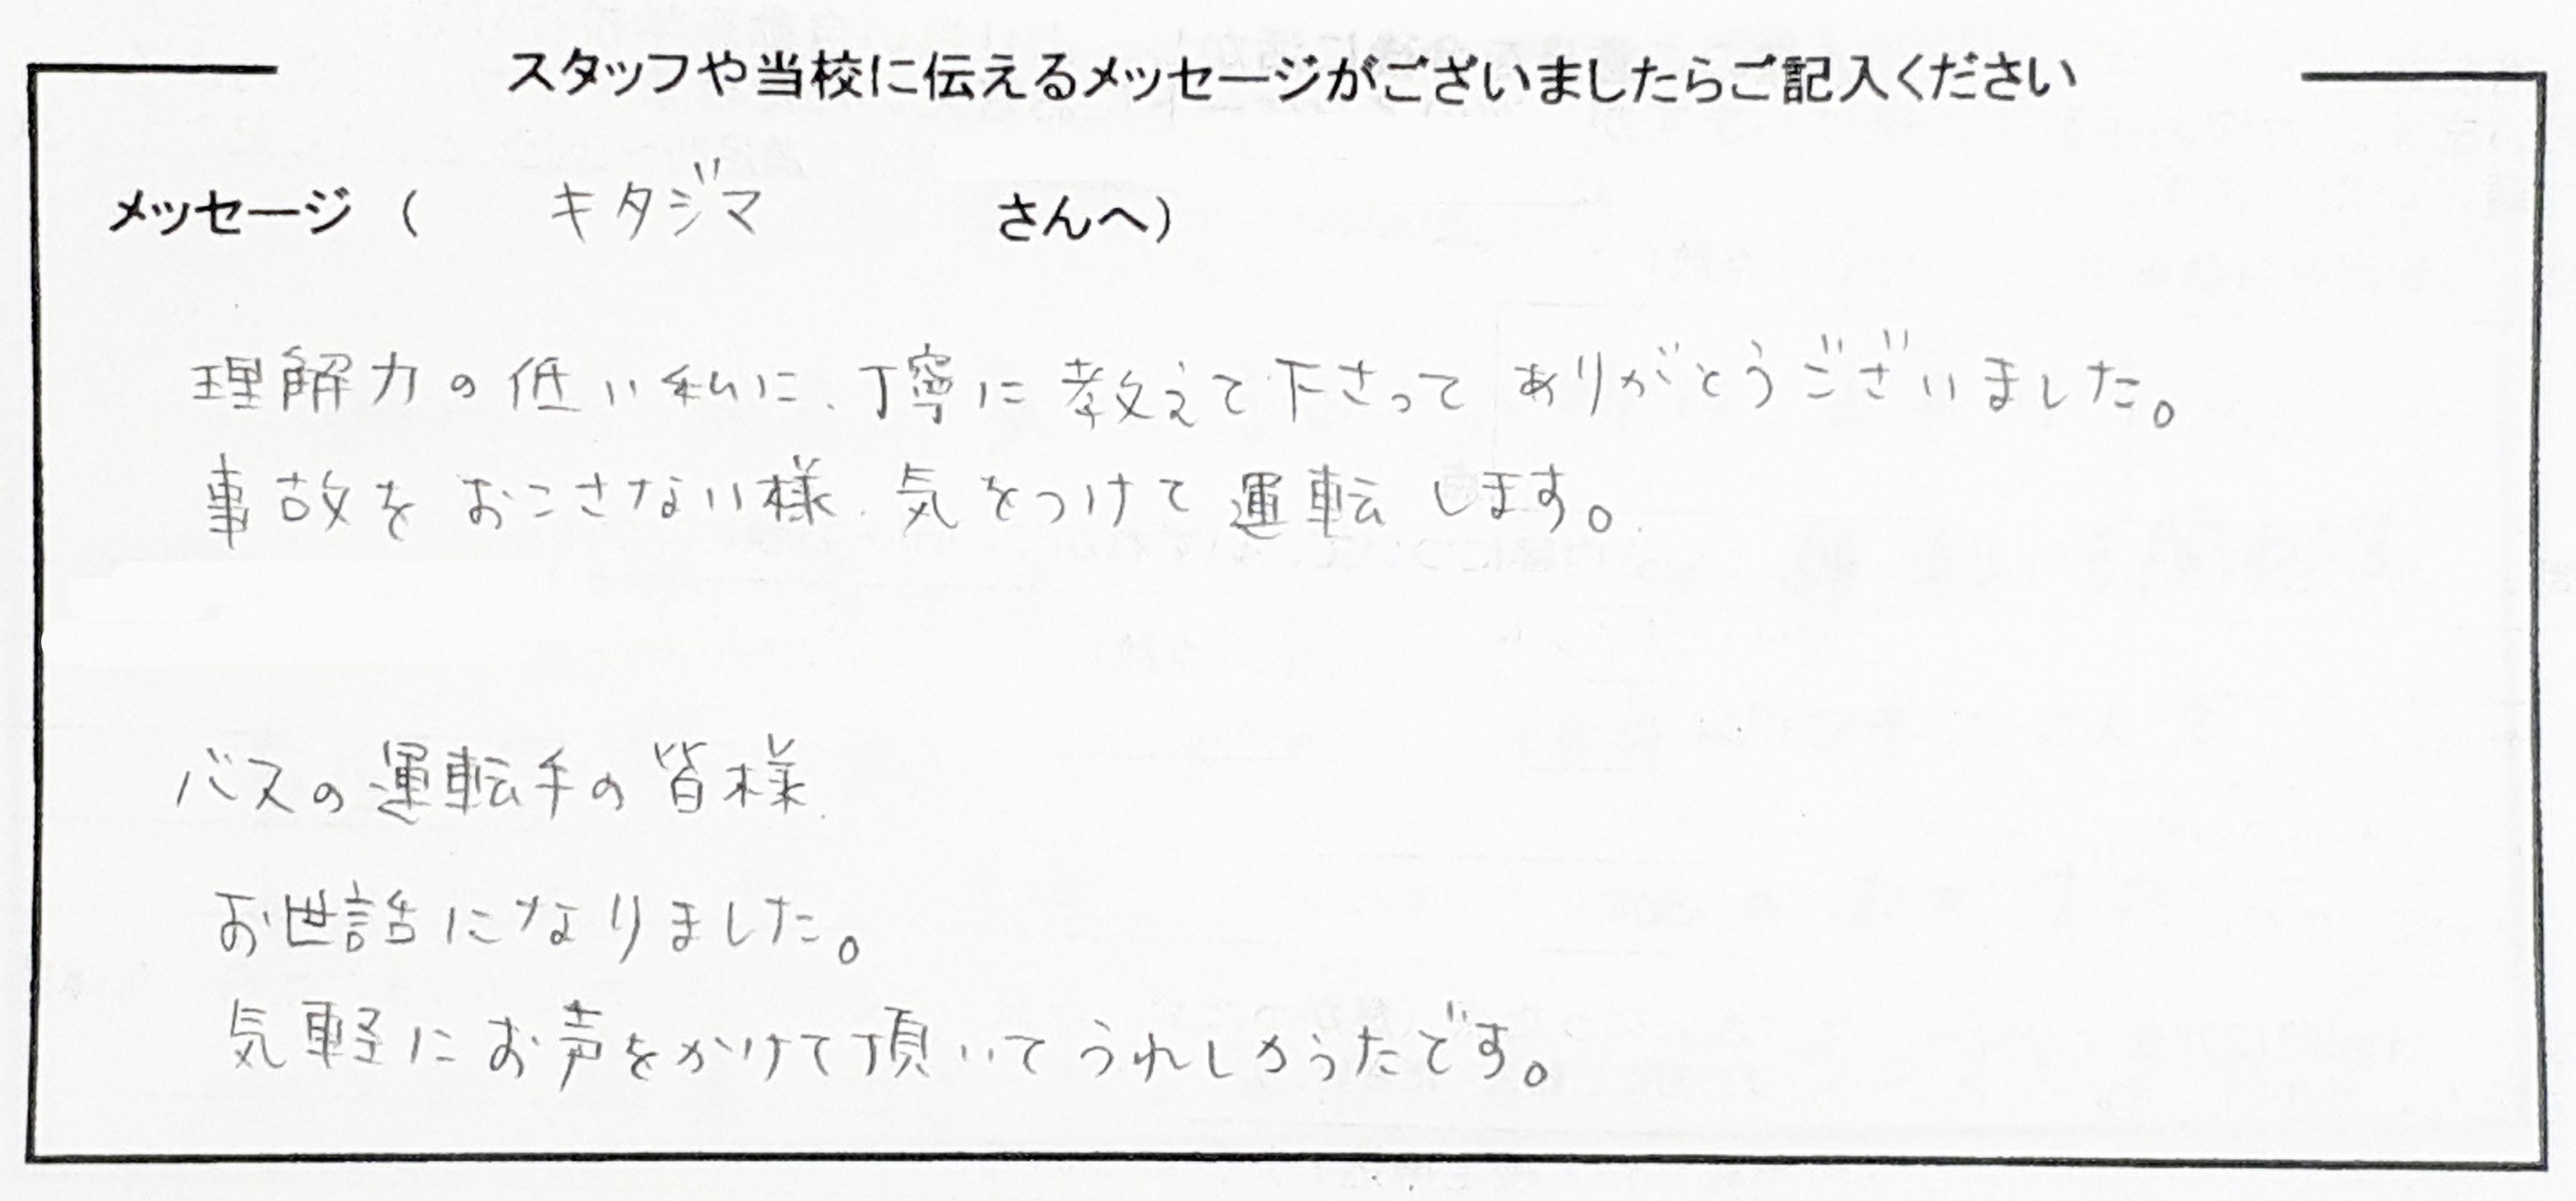 スタッフや当校に伝えるメッセージがございましたらご記入ください
メッセージ（ キタジマ さんへ）
理解力の低い私に、丁寧に教えて下さってありがとうございました。
事故をおこさない様、気をつけて運転します。
バスの運転手の皆様、
お世話になりました。
気軽にお声をかけて頂いてうれしかったです。